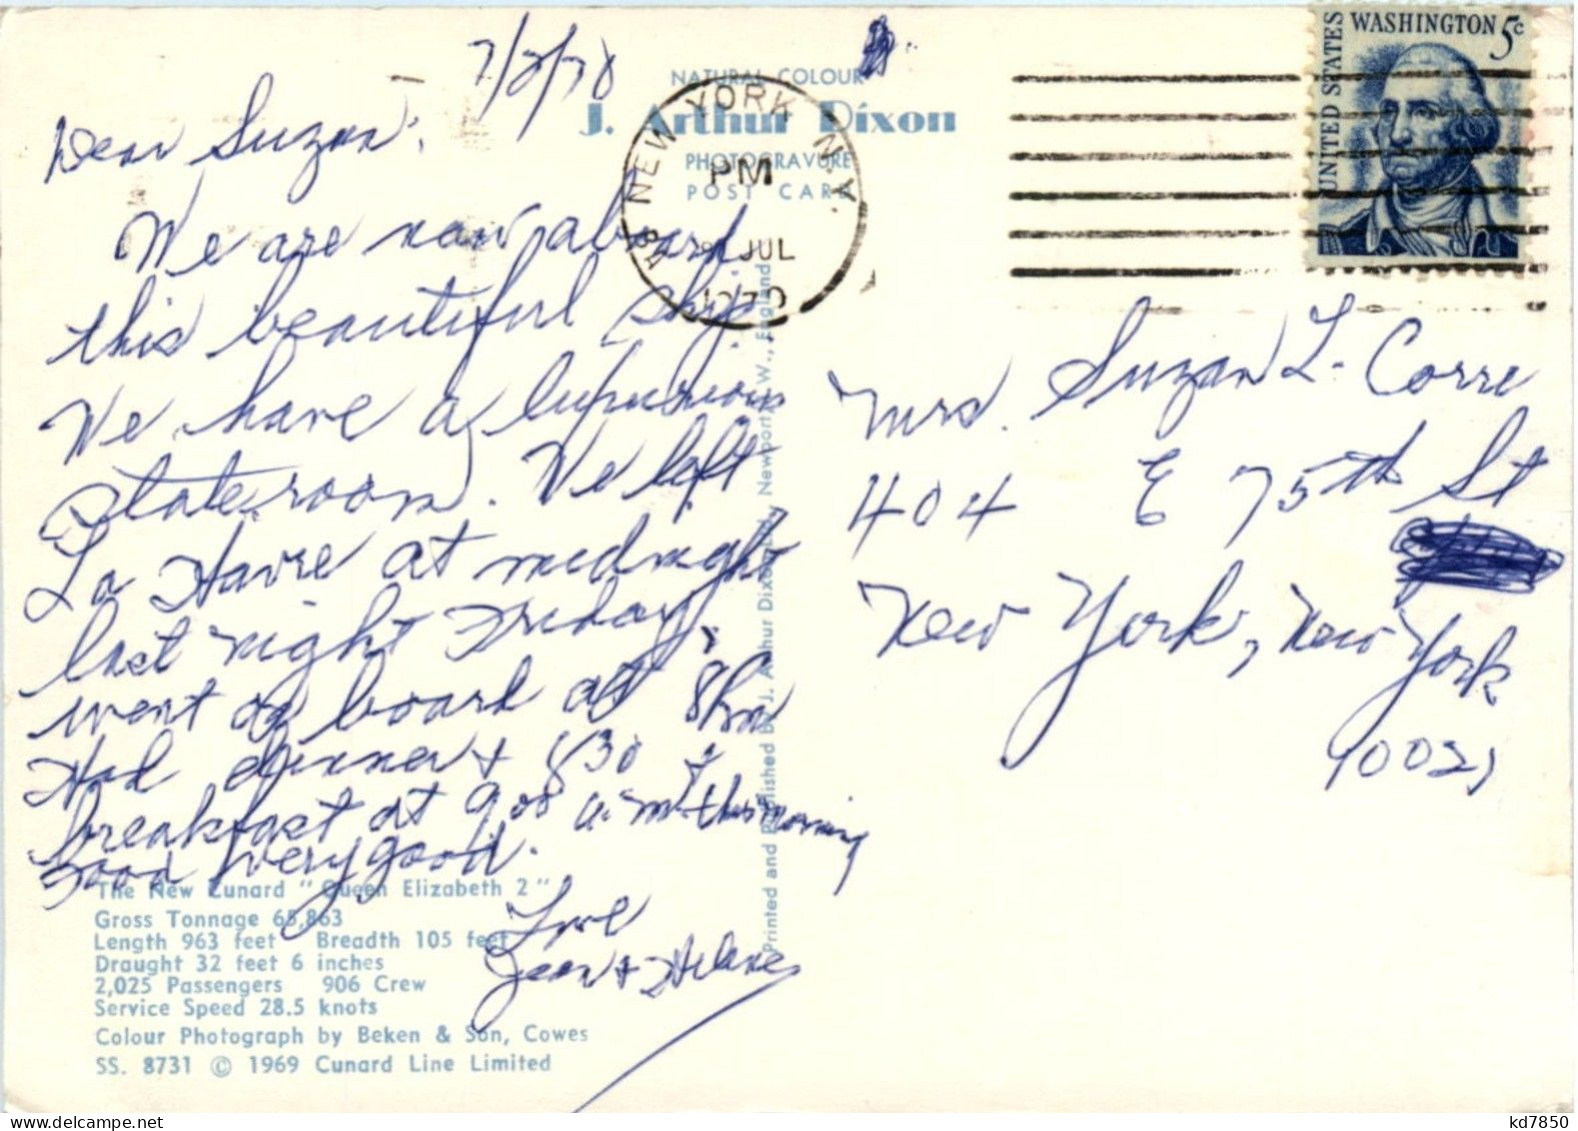 7/2/70
Dear Suzan:
We are now aboard
this beautiful ship.
We have a luxurious
stateroom. We left
La Havre at midnight
last night Friday,
went on board at 8 hr
Had dinner + 830 +
breakfast at 9 00 a.m. this morning
Food very good.
Love
Jean + Helene
NATURAL COLOUR
J. Arthur Dixon
PHOTOGRAVURE
POST CARD
NEW YORK N.Y.
PM
JUL
1970
UNITED STATES
WASHINGTON 5c
Mrs. Suzan L. Corre
404 E 75th St
New York, New York
10021
Printed and Published by J. Arthur Dixon Ltd., Newport I.W., England
The New Cunard "Queen Elizabeth 2"
Gross Tonnage 65,863
Length 963 feet Breadth 105 feet
Draught 32 feet 6 inches
2,025 Passengers 906 Crew
Service Speed 28.5 knots
Colour Photograph by Beken & Son, Cowes
SS. 8731 © 1969 Cunard Line Limited
kd7850